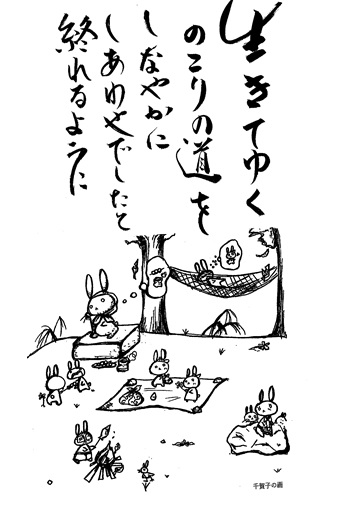 生きてゆく
のこりの道を
しなやかに
しあわせでしたと
終れるように
千賀子の画